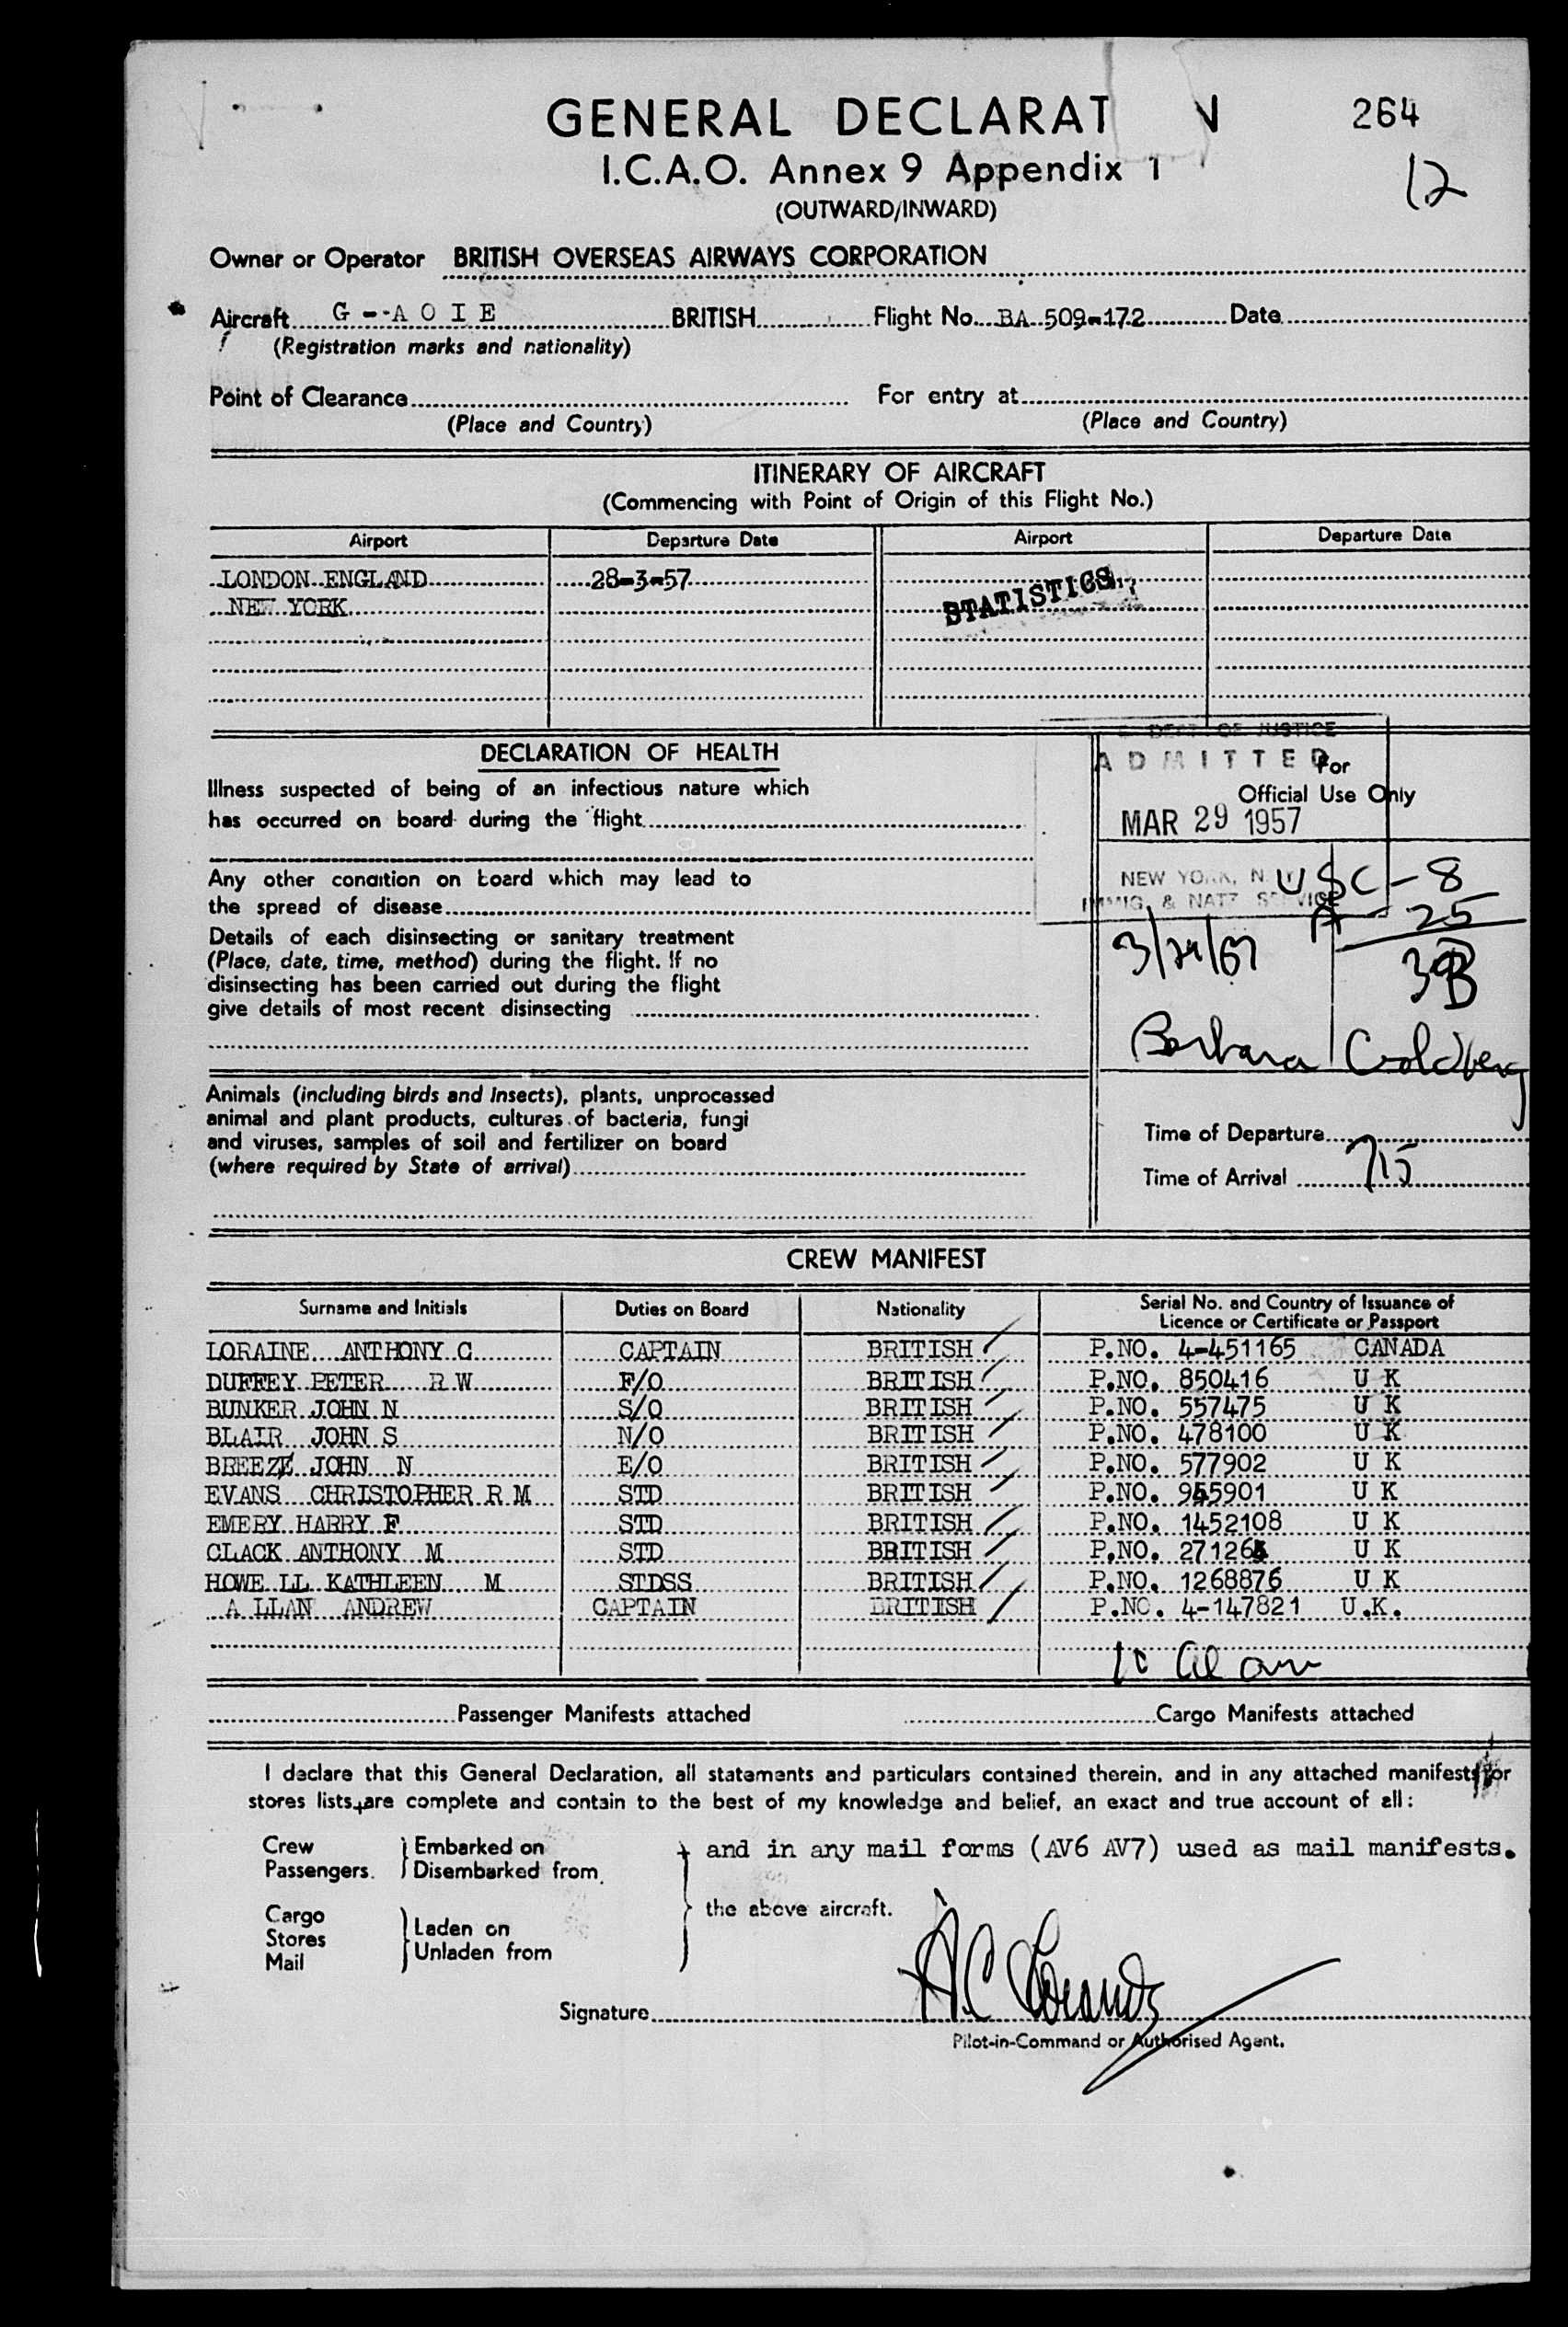 GENERAL DECLARAT N 264
I.C.A.O. Annex 9 Appendix 1 12
(OUTWARD/INWARD)
Owner or Operator BRITISH OVERSEAS AIRWAYS CORPORATION
Aircraft G--A O I E BRITISH Flight No. BA 509-172 Date
(Registration marks and nationality)
Point of Clearance For entry at
(Place and Country) (Place and Country)
ITINERARY OF AIRCRAFT
(Commencing with Point of Origin of this Flight No.)
Airport Departure Date Airport Departure Date
LONDON ENGLAND 28-3-57
NEW YORK STATISTICS
DEPT. OF JUSTICE
DECLARATION OF HEALTH ADMITTED For
Illness suspected of being of an infectious nature which Official Use Only
has occurred on board during the flight MAR 29 1957
Any other condition on board which may lead to NEW YORK, N.Y. USC - 8
the spread of disease IMMIG. & NATZ SERVICE A - 25
Details of each disinsecting or sanitary treatment
(Place, date, time, method) during the flight. If no 3/29/57
disinsecting has been carried out during the flight
give details of most recent disinsecting
Barbara Goldberg
Animals (including birds and Insects), plants, unprocessed
animal and plant products, cultures of bacteria, fungi
and viruses, samples of soil and fertilizer on board Time of Departure
(where required by State of arrival) Time of Arrival 715
CREW MANIFEST
Surname and Initials Duties on Board Nationality Serial No. and Country of Issuance of
Licence or Certificate or Passport
LORAINE ANTHONY C CAPTAIN BRITISH P.NO. 4-451165 CANADA
DUFFEY PETER R W F/O BRITISH P.NO. 850416 U K
BUNKER JOHN N S/O BRITISH P.NO. 557475 U K
BLAIR JOHN S N/O BRITISH P.NO. 478100 U K
BREEZE JOHN N E/O BRITISH P.NO. 577902 U K
EVANS CHRISTOPHER R M STD BRITISH P.NO. 945901 U K
EMERY HARRY F STD BRITISH P.NO. 1452108 U K
CLACK ANTHONY M STD BRITISH P.NO. U K
HOWE LL KATHLEEN M STDSS BRITISH P.NO. 1268876 U K
A LLAN ANDREW CAPTAIN BRITISH P.NO. 4-147821 U.K.
10
Passenger Manifests attached Cargo Manifests attached
I declare that this General Declaration, all statements and particulars contained therein, and in any attached manifests or
stores lists, are complete and contain to the best of my knowledge and belief, an exact and true account of all:
Crew Embarked on and in any mail forms (AV6 AV7) used as mail manifests.
Passengers. Disembarked from
the above aircraft.
Cargo
Stores Laden on
Mail Unladen from
Signature A C Loraine
Pilot-in-Command or Authorised Agent.